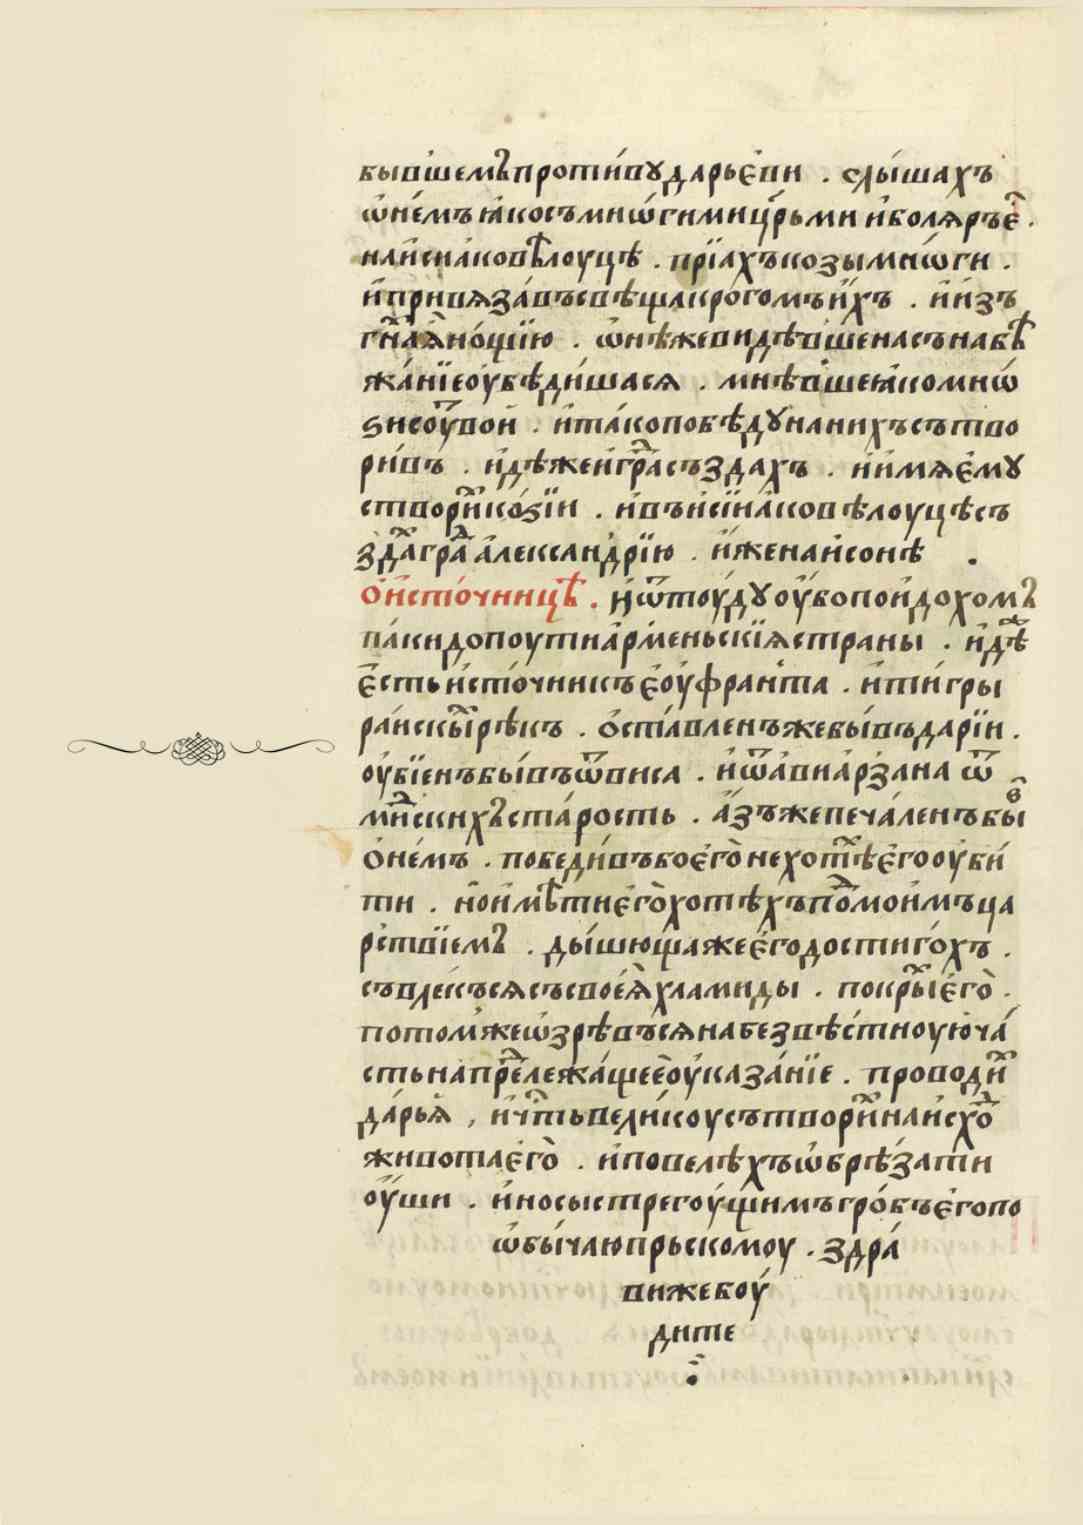 бывшемꙋ противꙋ дарьєви . слы́шахъ
ѡ не́мъ ꙗко съ мнѡ́гими цр҃ьми и҆ болѧръ є҆
на и҆си́ ꙗ҆ковѣ лоуцѣ . прїахъ козы мнѡ́ги .
и҆ привѧза́въ свѣща к рогомъ и҆́хъ . и҆ и҆зъ
ѡни же видѣвше на съ набѣ
жа́нїе оу҆бѣди́шасѧ . мнѣвше ꙗко мнѡ́
ѕи соу҆́ вои . и҆ та́ко победу на нихъ сътво
ри́въ . и҆дѣже и҆ гра҆ създахъ . и҆ и҆мѧ є҆мꙋ
створи҆ ко́ѕїи . и҆ въ и҆сїи ꙗ҆ковѣ лоуцѣ съ
зда҆ гра҆ а҆леѯандрїю . и҆́же на и҆сонѣ .
о҆ и҆сто́чницѣ . и҆ ѿтоу́ду оу҆бо пои҆дохомꙋ
па́ки до поути а҆рменьскїѧ страны . и҆дѣ
є҆сть и҆сто́чникъ є҆оу҆франта . и҆ ти́гры
ра́искы рѣкъ . о҆ста́вленъ же бы́въ дарїи .
оу҆бїенъ бы́въ ѿ виса . и҆ ѿ а҆виа҆рзана ѿ
ми҆скихъ ста́рость . а҆́зъ же печа́ленъ бы
о҆ не́мъ . победи́въ бо є҆го̀ не хотѣ є҆го оу҆би́
ти . но́ и҆мѣти є҆го̀ хотѣхъ по҆ мои́мъ ца
рствїемꙋ . ды́шюща же є҆го достиго́хъ .
съвлекъсѧ съ свое́ѧ хламиды . покры є҆го̀ .
потом же ѡ҆зрѣвъсѧ на безвѣ́стноую ча́
сть на пре҆лежа́щее оу҆каза́нїе . проводи҆
да́рьѧ , и҆ чть велику сътвори҆ на и҆схо҆
живота є҆го̀ . и҆ повелѣхъ ѡ҆брѣзати
оу҆́ши . и҆ носы стрегоу́щимъ гро́бъ є҆го по
ѡ҆бы́чаю прьскомоу . здра́
ви же боу́
дите